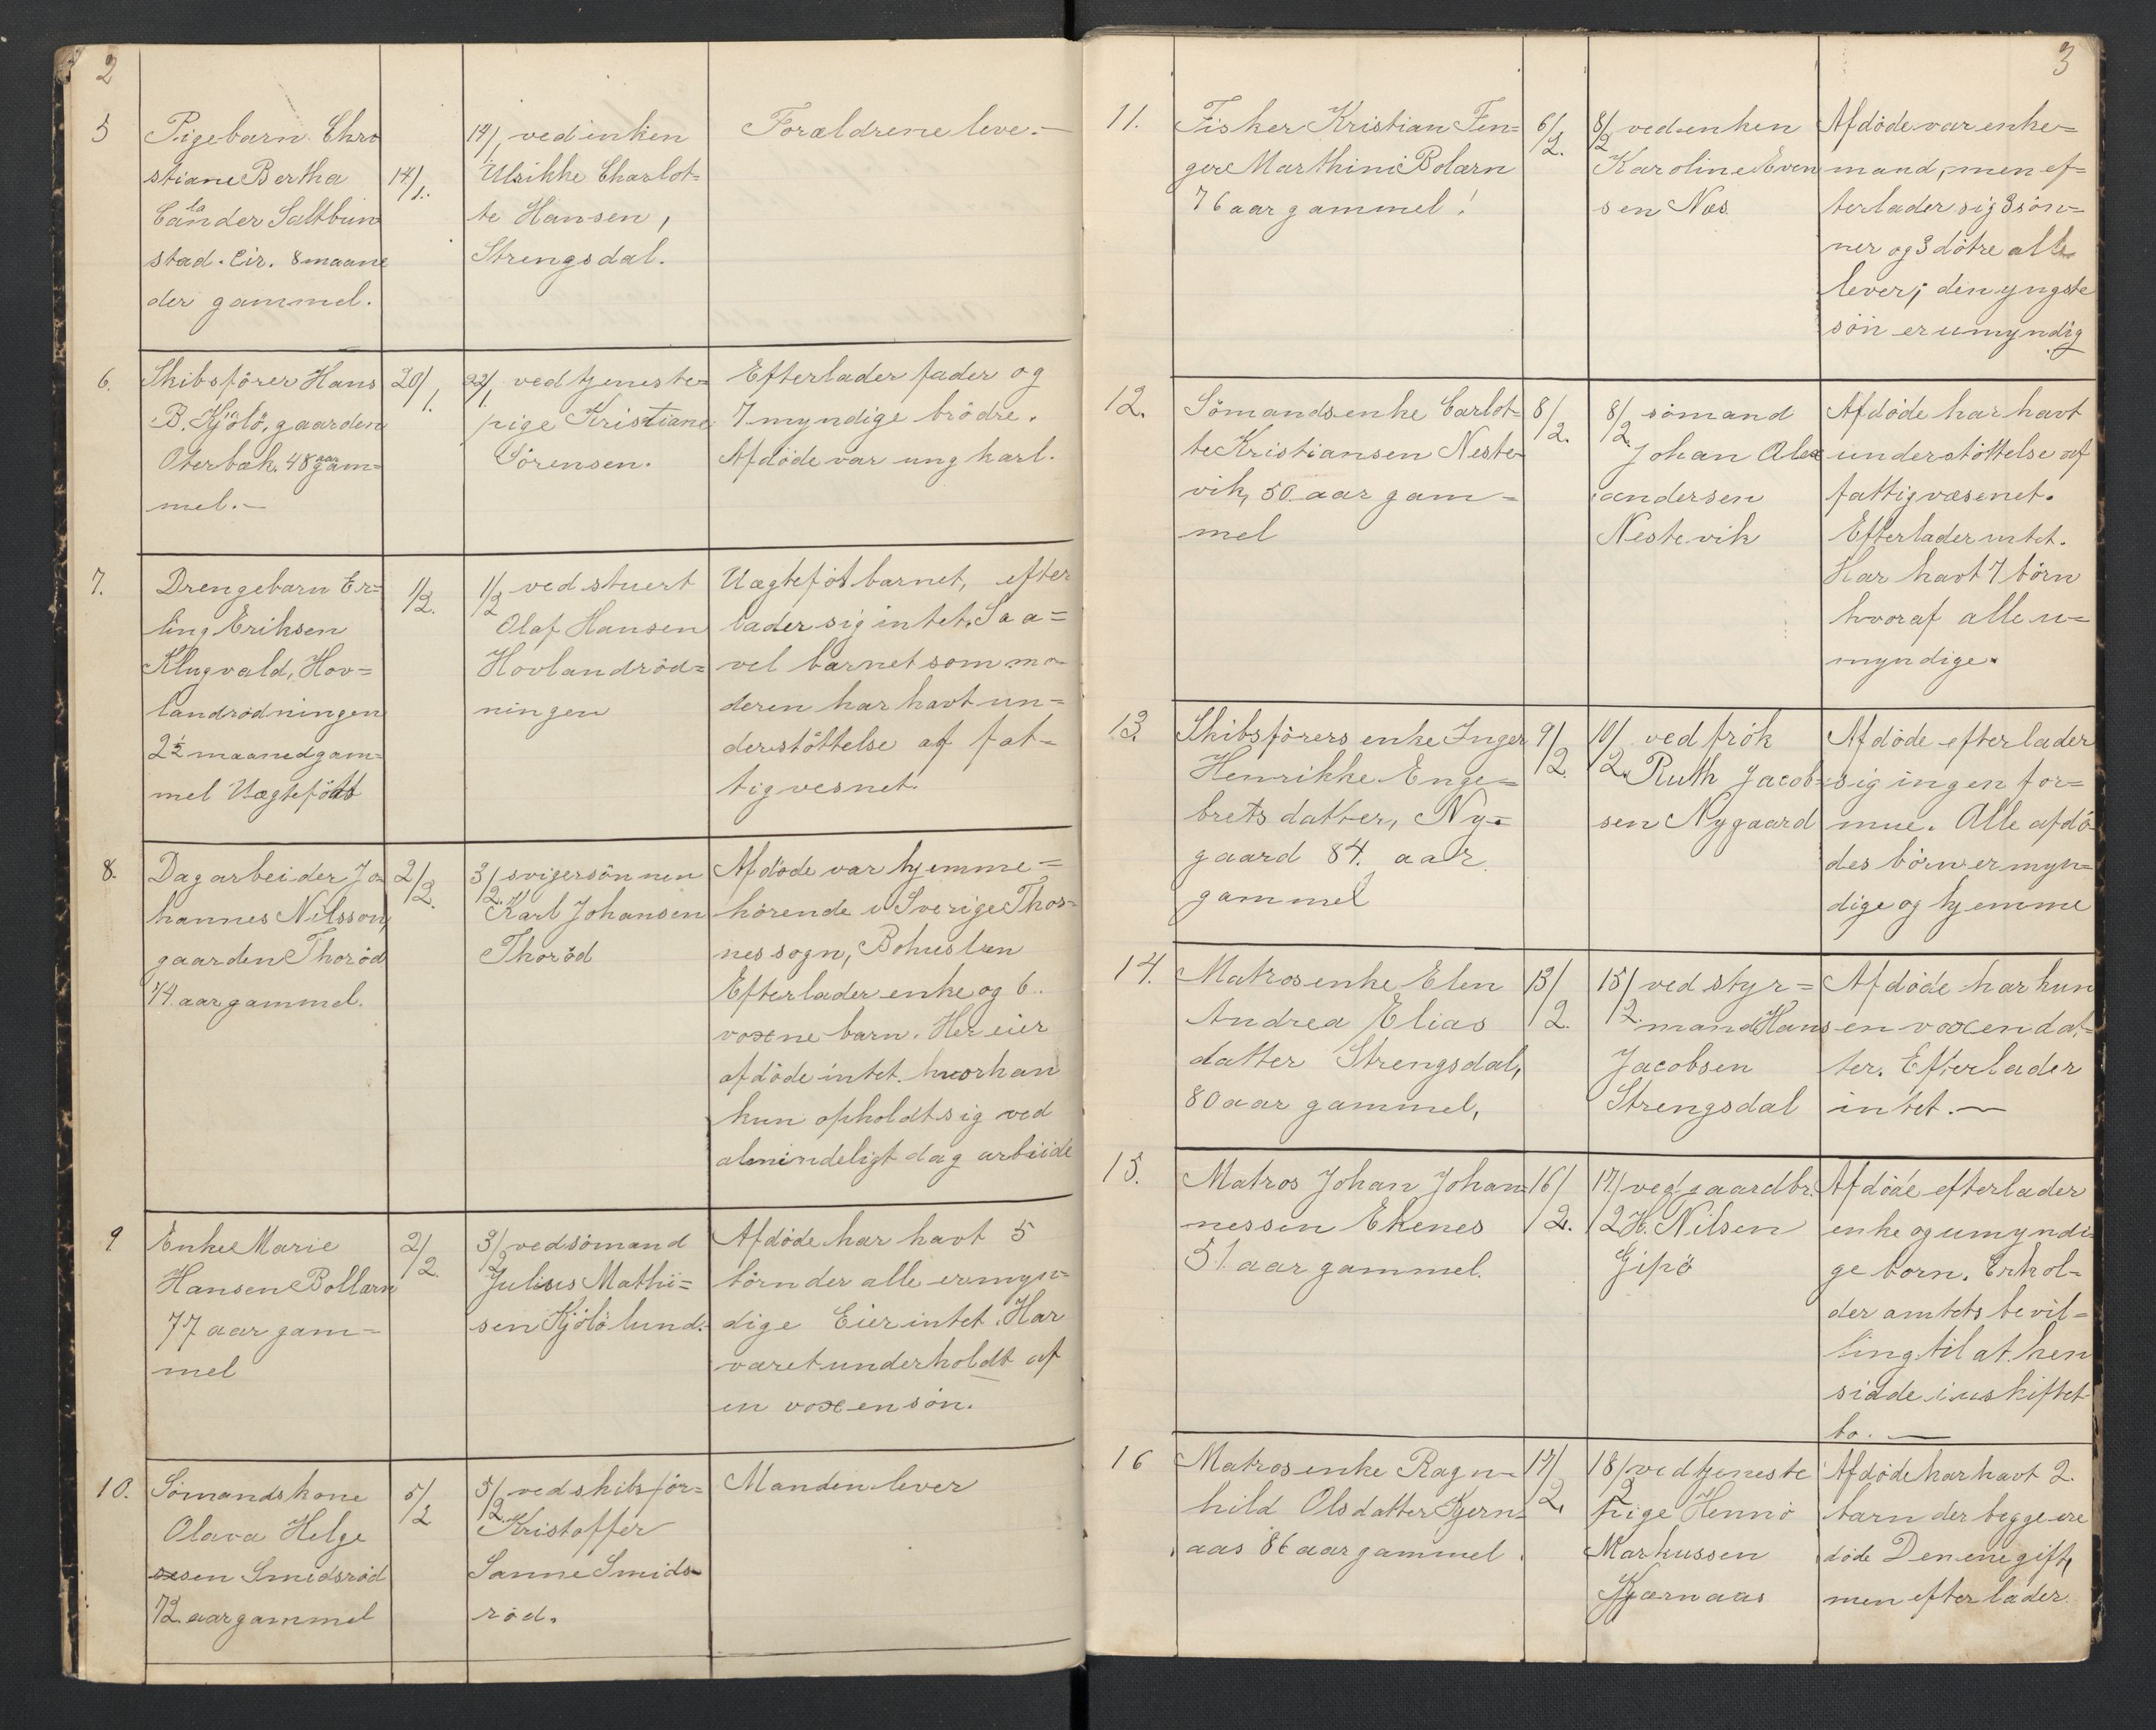 2
5
Pigebarn Chri
stiane Bertha
Calander Saltbun
stad. Cir. 8 maane
der gammel.
14/1.
14/1, ved enken
Ulrikke Charlot=
te Hansen,
Strengsdal.
Forældrene leve.—
6.
Skibsförer Hans
B. Kjölö, gaarden
Oterbæk. 48 aar gam=
mel.—
20/1.
22/1 ved tjeneste=
pige Kristiane
Sörensen.
Efterlader fader og
7 myndige brödre.
Afdöde var ung karl.
7.
Drengebarn Er=
ling Eriksen
Klugvald, Hov=
landrödningen
2½ maaned gam=
mel Uægtefödt
1/2.
1/2 ved stuert
Olaf Hansen
Hovlandröd=
ningen
Uægteföt barnet, efter
lader sig intet. Saa=
vel barnet som mo=
deren har havt un=
derstöttelse af fat=
tigvesnet.
8.
Dagarbeider Jo=
hannes Nilsson,
gaarden Thoröd
74. aar gammel.
2/2.
3/2. svigersönnen
Karl Johansen
Thoröd
Afdöde var hjemme=
hörende i Sverige Thos=
nes sogn, Bohuslen
Efterlader enke og 6.
voxne barn. Her eier
afdöde intet. hvor han
kun opholdt sig ved
almindeligt dag arbiide
9
Enke Marie
Hansen Bollærn
77 aar gam=
mel
2/2.
3/2 ved sömand
Julius Mathi=
sen Kjölö lund.
Afdöde har havt 5
börn der alle er myn=
dige Eier intet. Har
været underholdt af
en voxen sön.
10.
Sömandskone
Olava Helge
sen Smidsröd
72 aar gammel
5/2
5/2. ved skibsför=
Kristoffer
Sanne Smids=
röd.
Manden lever
3
11.
Fisker Kristian Fin=
gere Marthini Bolærn
76 aar gammel!
6/2.
8/2 ved enken
Karoline Even
sen Næs
Afdöde var enke=
mand, men ef=
terlader sig 3 sön=
ner og 3 dötre alle
lever; den yngste
sön er umyndig
12.
Sömandsenke Carlot=
te Kristiansen Neste=
vik, 50 aar gam=
mel
8/2.
8/2. sömand
Johan Alex
andersen
Nestevik
Afdöde har havt
understöttelse af
fattigvæsenet.
Efterlader intet.
Har havt 7 börn
hvoraf alle u=
myndige.
13.
Skibsförers enke Inger
Henrikke Enge=
bretsdatter, Ny=
gaard 84. aar
gammel
9/2.
10/2. ved frök
Ruth Jacob=
sen Nygaard
Afdöde efterlader
sig ingen for=
mue. Alle afdö=
des börn er myn=
dige og hjemme
14.
Matrosenke Elen
Andrea Elias
datter Strengsdal,
80 aar gammel,
13/2.
15/2. ved styr=
mand Hans
Jacobsen
Strengsdal
Afdöde har kun
en voxen dat=
ter. Efterlader
intet.—
15.
Matros Johan Johan=
nessen Ekenes
51. aar gammel.
16/2.
17/2 ved gaardbr.
H. Nilsen
Gipö
Afdöde efterlader
enke og umyndi=
ge born. Erhol=
der amtets bevil=
ling til at hen
sidde i uskiftet
bo.—
16
Matrosenke Ragn=
hild Olsdatter Kjern=
aas 86 aar gammel.
17/2.
18/2 ved tjeneste
pige Hennö
Markussen
Kjærnaas
Afdöde har havt 2.
barn der begge ere
döde Den ene gift,
men efterlader